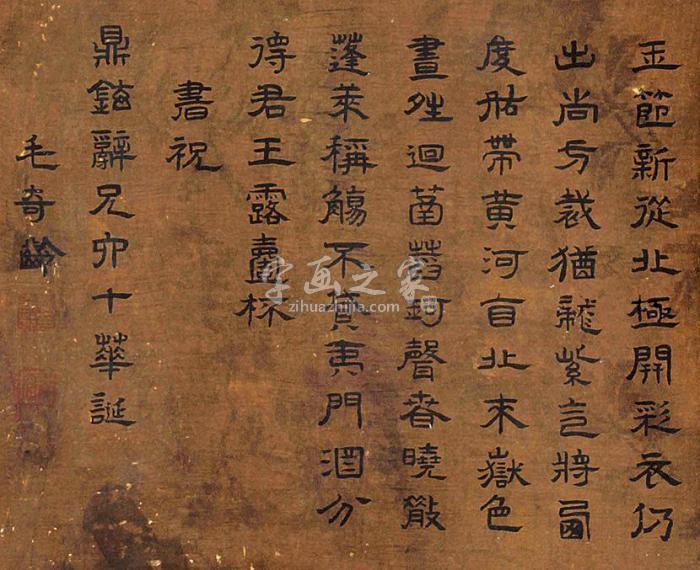 玉節新從北極開彩衣仍
出尚方裁猶龍紫气將函
度帶黃河自北來嶽色
晝迴菡萏聲春曉散
蓬萊稱觴不負夷門酒分
得君王露杯
書祝
鼎鉉辭兄六十華誕
毛奇齡
字画之家
zihuazhijia.com